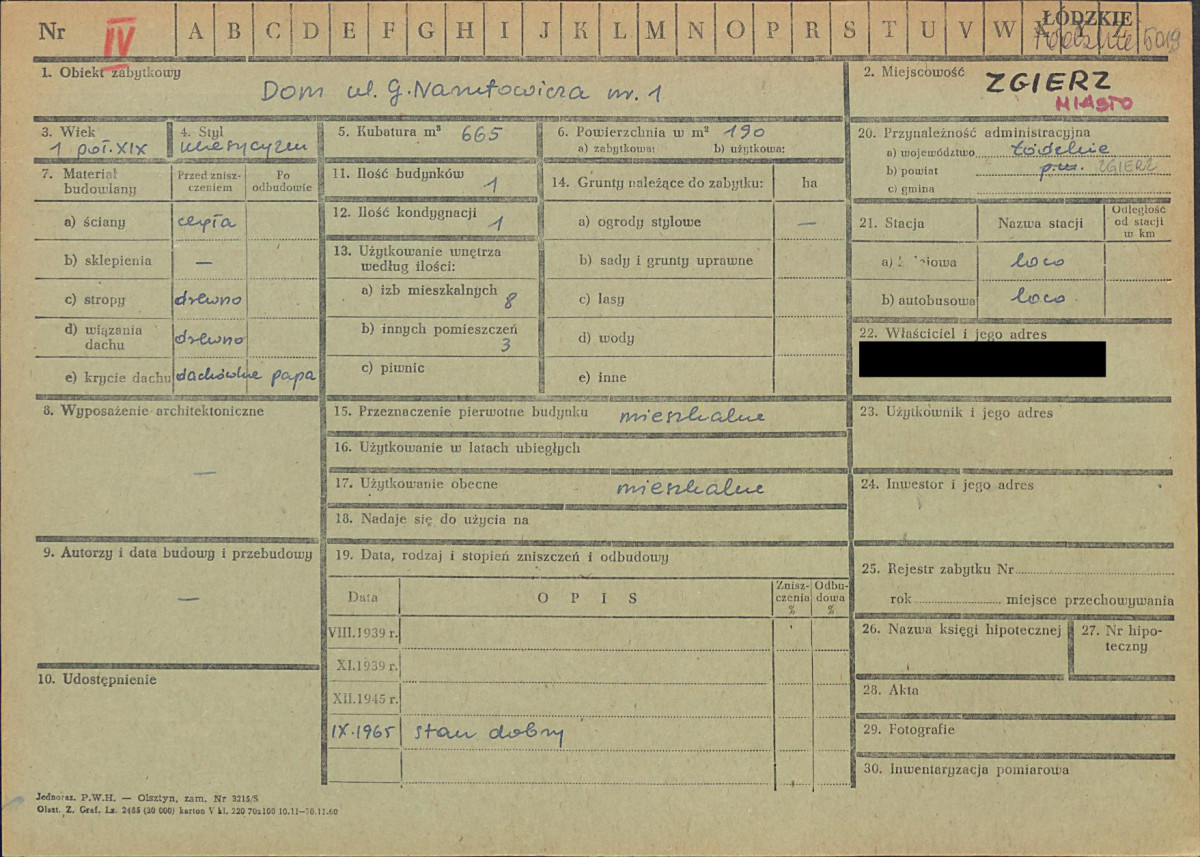 Nr IV A B C D E F G H I J K L M N O P R S T U V W X Y Z ŁÓDZKIE
1. Obiekt zabytkowy
Dom ul. G. Narutowicza nr. 1
2. Miejscowość ZGIERZ
MIASTO
3. Wiek
1 poł. XIX
4. Styl
klasycyzm
5. Kubatura m³ 665
6. Powierzchnia w m² 190
a) zabytkowa: b) użytkowa:
20. Przynależność administracyjna
a) województwo Łódzkie
b) powiat p.m. ZGIERZ
c) gmina
7. Materiał budowlany
Przed znisz-
czeniem
Po
odbudowie
a) ściany cegła
b) sklepienia —
c) stropy drewno
d) wiązania
dachu drewno
e) krycie dachu dachówka papa
11. Ilość budynków 1
12. Ilość kondygnacji 1
13. Użytkowanie wnętrza
według ilości:
a) izb mieszkalnych 8
b) innych pomieszczeń 3
c) piwnic
14. Grunty należące do zabytku: ha
a) ogrody stylowe —
b) sady i grunty uprawne
c) lasy
d) wody
e) inne
21. Stacja Nazwa stacji
Odległość
od stacji
w km
a) loco
b) autobusowa loco
22. Właściciel i jego adres
8. Wyposażenie architektoniczne
—
15. Przeznaczenie pierwotne budynku mieszkalne
16. Użytkowanie w latach ubiegłych
17. Użytkowanie obecne mieszkalne
18. Nadaje się do użycia na
23. Użytkownik i jego adres
24. Inwestor i jego adres
9. Autorzy i data budowy i przebudowy
—
10. Udostępnienie
19. Data, rodzaj i stopień zniszczeń i odbudowy
Data OPIS
Znisz-
czenia
%
Odbu-
dowa
%
VIII.1939 r.
XI.1939 r.
XII.1945 r.
IX.1965 stan dobry
25. Rejestr zabytku Nr
rok miejsce przechowywania
26. Nazwa księgi hipotecznej
27. Nr hipo-
teczny
28. Akta
29. Fotografie
30. Inwentaryzacja pomiarowa
Jednoraz. P.W.H. — Olsztyn, zam. Nr 3215/S
Olszt. Z. Graf. Lz. 2485 (30 000) karton V kl. 220 70x100 10.11—30.11.60